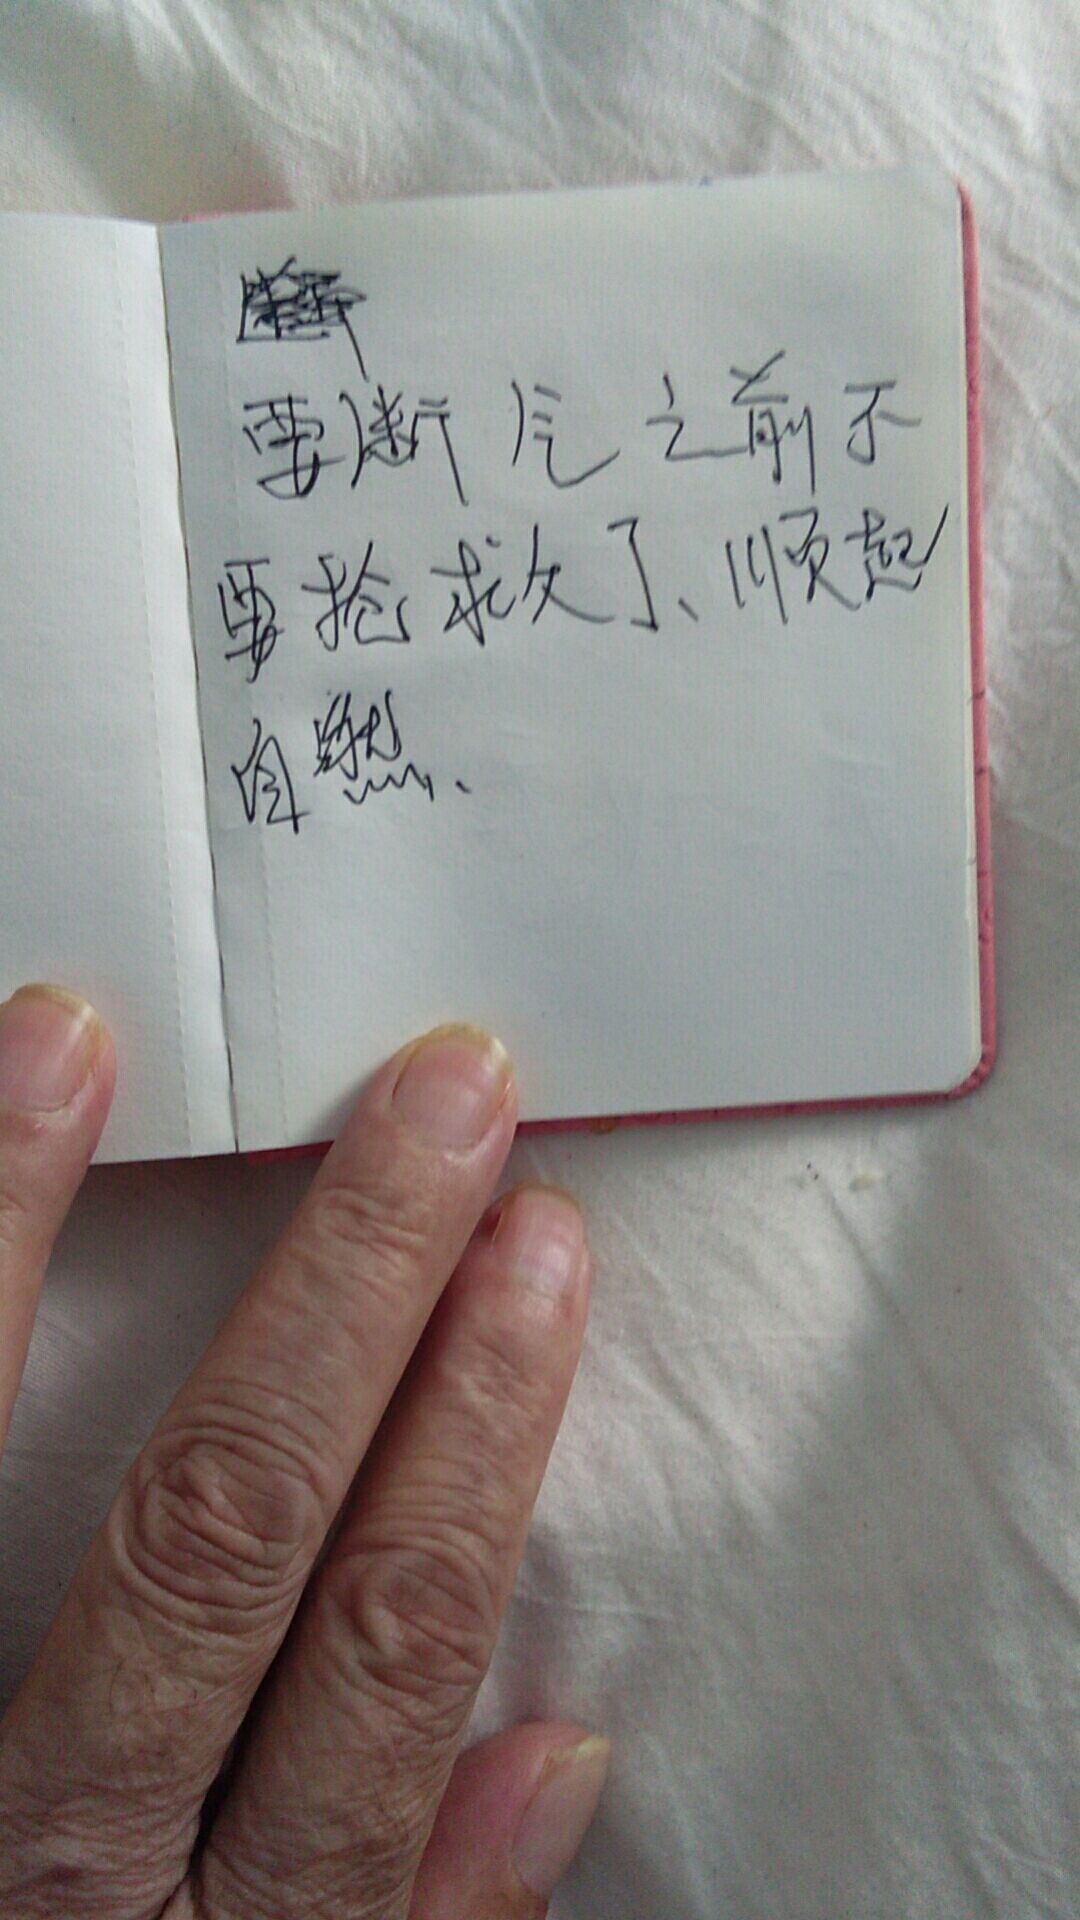 要断气之前不
要抢救了、顺起
自然、